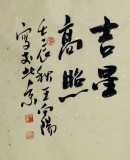 吉星
高照
壬辰秋王
寫於北京